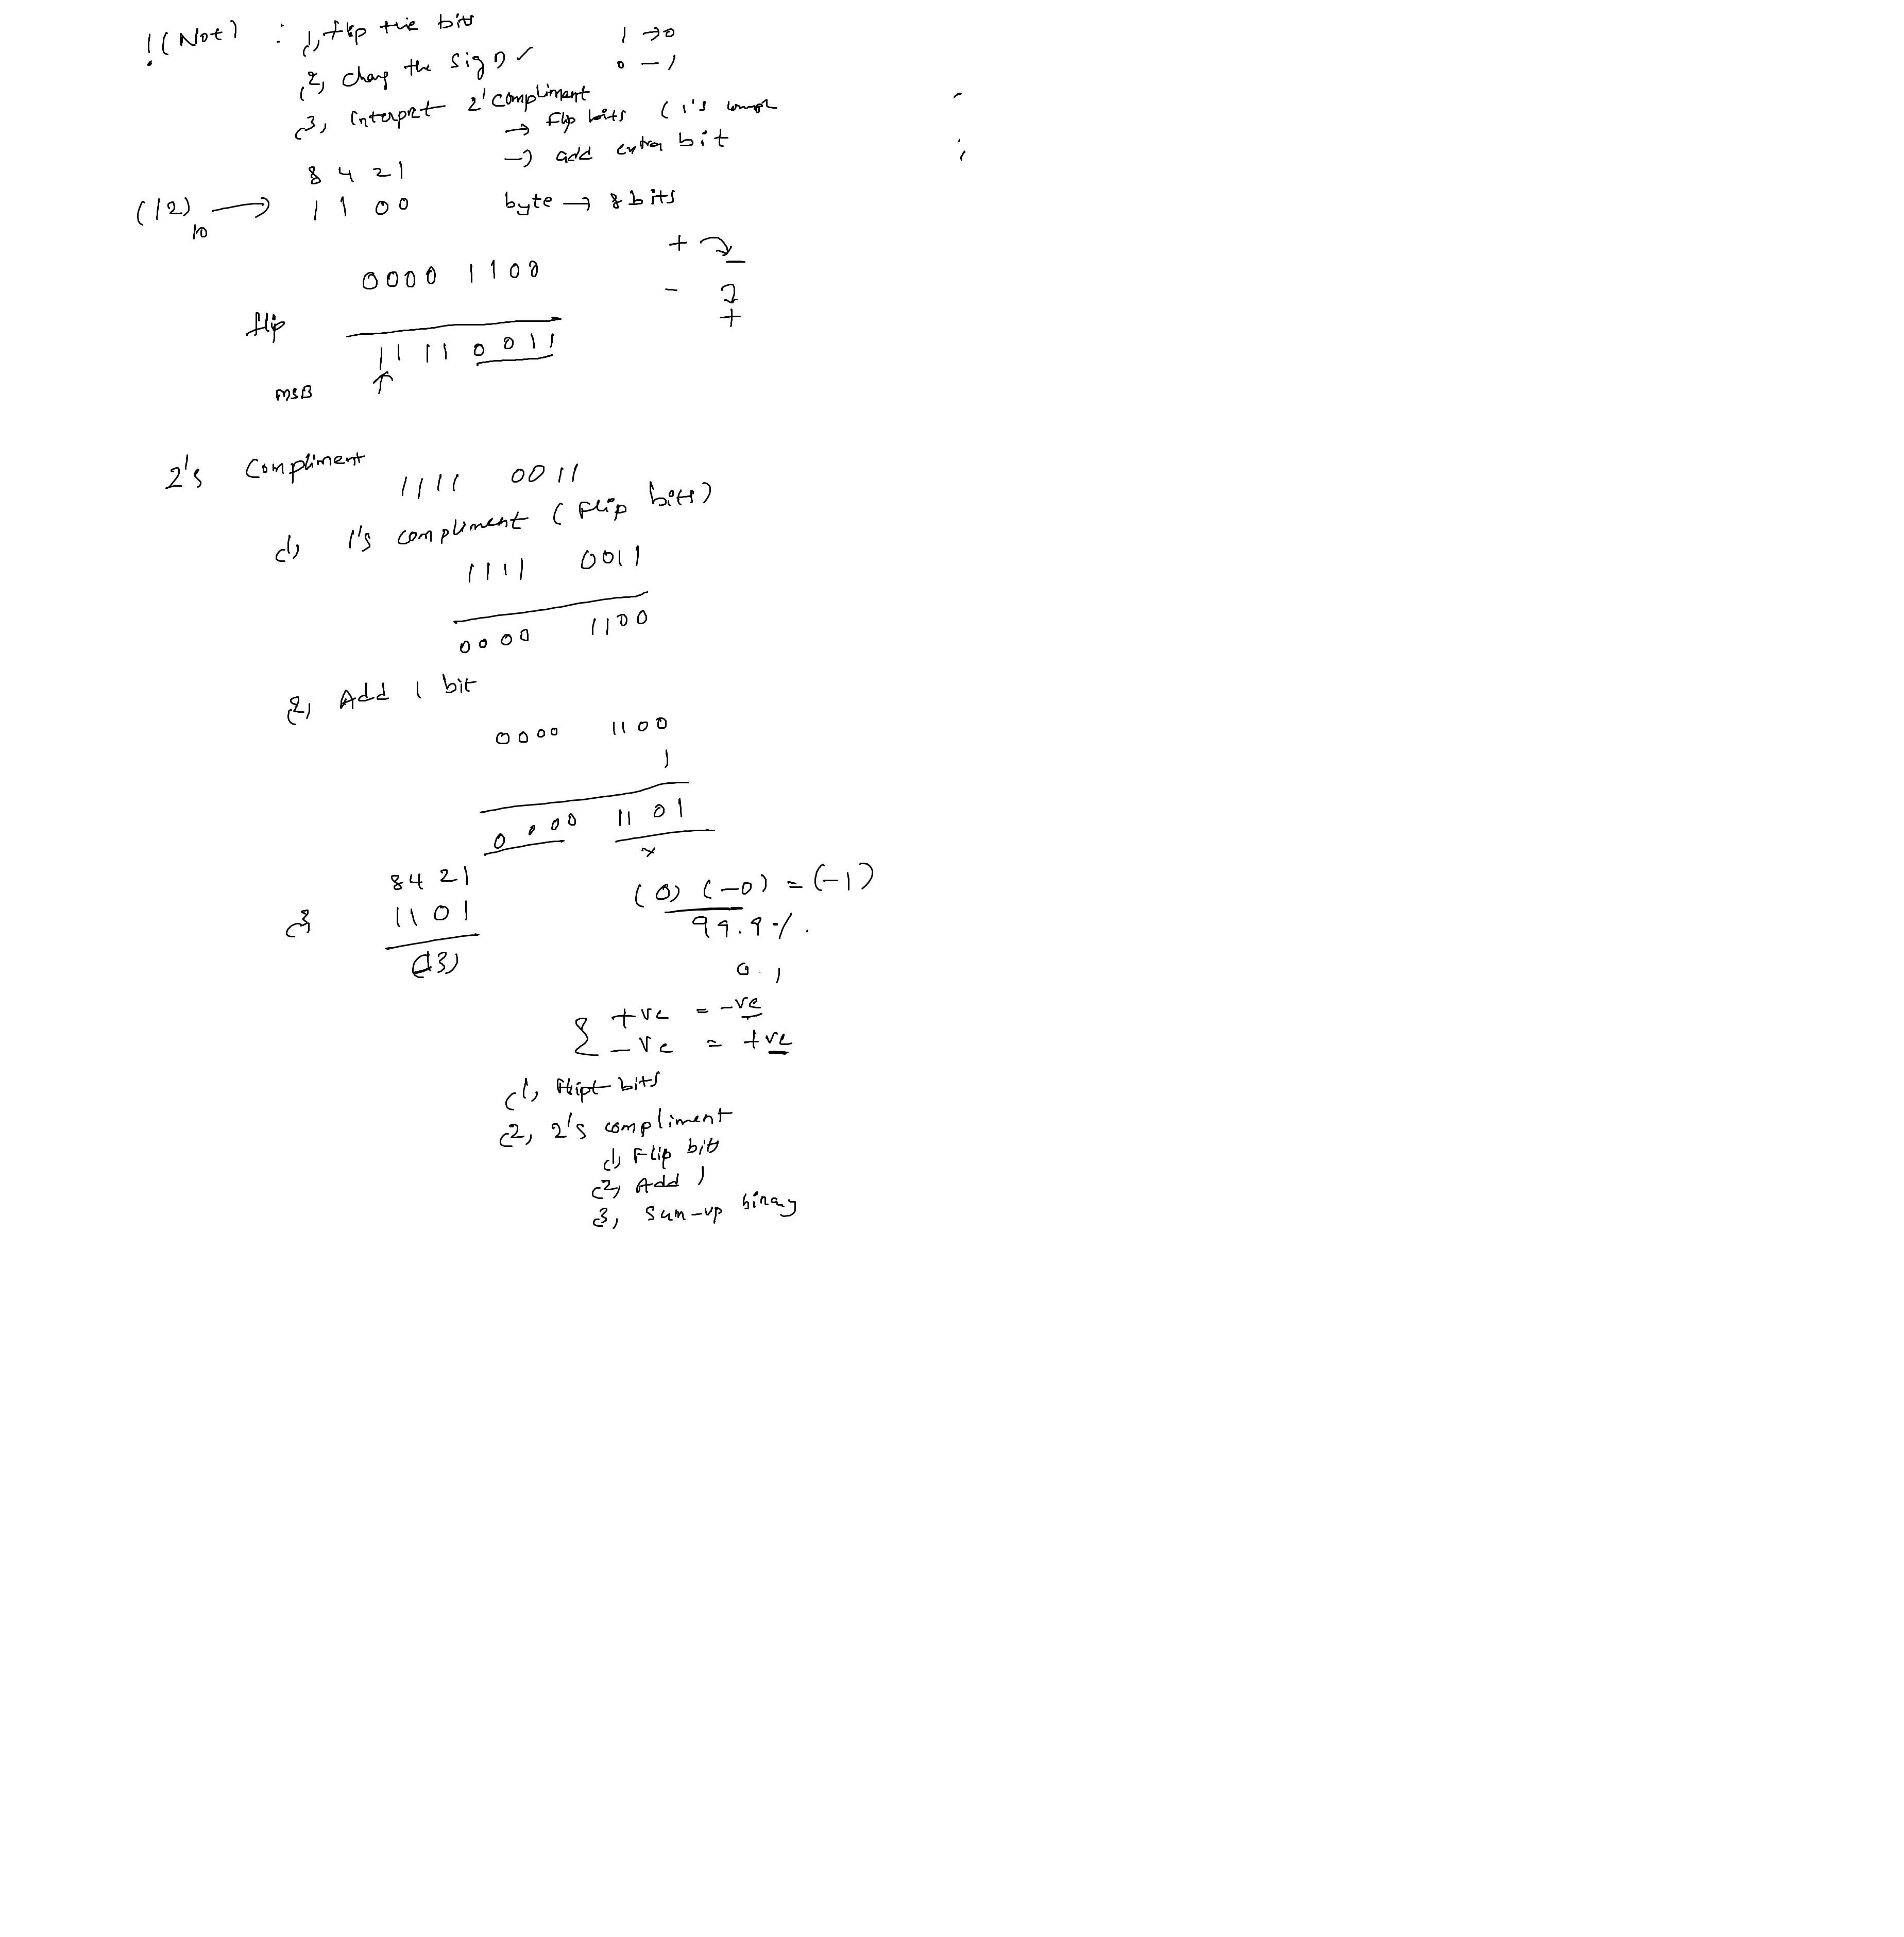 !(Not) : (1, flip the bits
1 → 0
(2, Chang the Sign ✓
0 — 1
(3, Interpret 2' Compliment
→ Flip bits ( 1's
→ add extra bit
8 4 2 1
(12)10 → 1 1 0 0
byte → 8 bits
+ → −
0000 1100
− → +
flip
1111 0011
MSB ↑
2's Compliment
1111 0011
(1, 1's compliment ( Flip bits )
1111 0011
0000 1100
(2, Add 1 bit
0000 1100
1
0000 1101
8 4 2 1
(0) (-0) = (-1)
(3 1101
99.9 %.
(13)
0.1
{ +ve = -ve
-ve = +ve
(1, bits
(2, 2's compliment
(1, Flip bits
(2, Add 1
(3, Sum-up binary